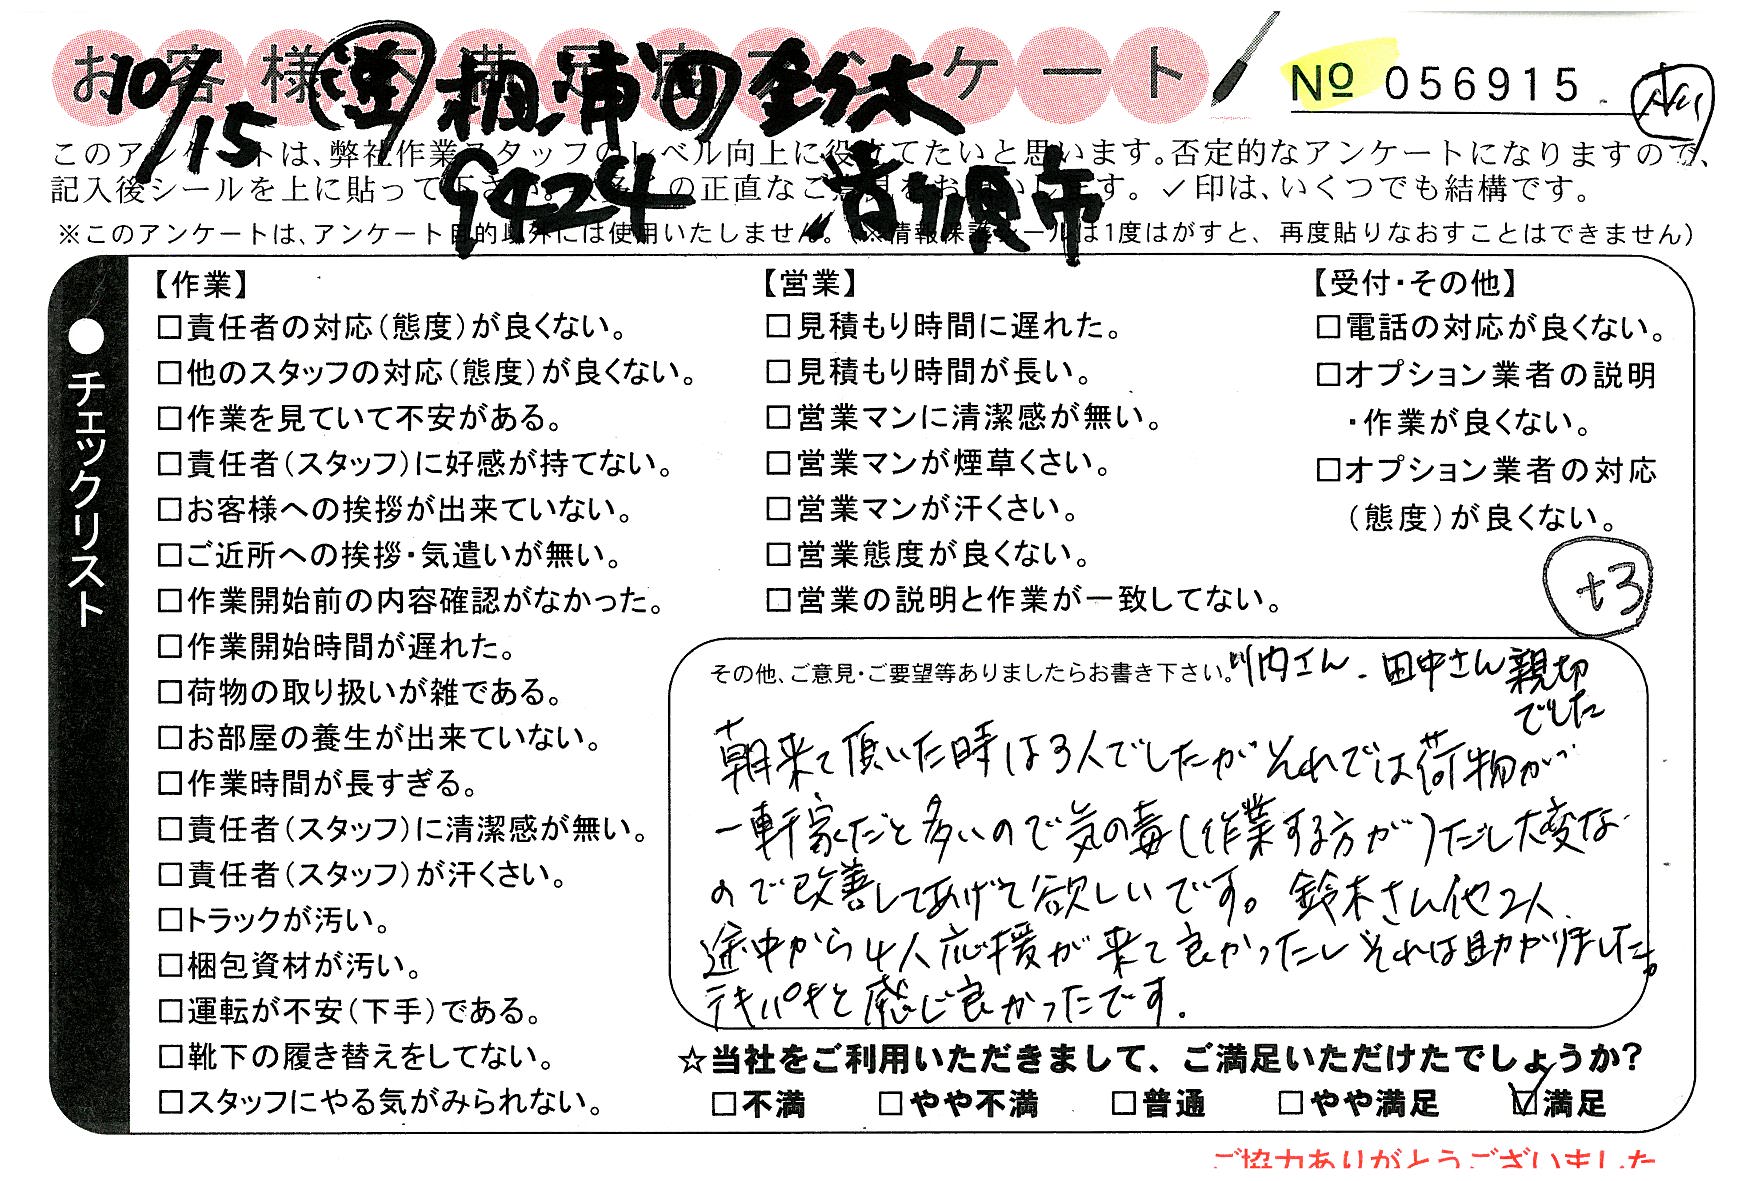 お客様不満足度アンケート
No 056915
10/15 相、浦、田 鈴木
9424 横須賀市
このアンケートは、弊社作業スタッフのレベル向上に役立てたいと思います。否定的なアンケートになりますので、
記入後シールを上に貼って下さい。の正直なご意見をお願いします。✓印は、いくつでも結構です。
※このアンケートは、アンケート目的以外には使用いたしません。(※情報保護シールは1度はがすと、再度貼りなおすことはできません)
●チェックリスト
【作業】
□責任者の対応(態度)が良くない。
□他のスタッフの対応(態度)が良くない。
□作業を見ていて不安がある。
□責任者(スタッフ)に好感が持てない。
□お客様への挨拶が出来ていない。
□ご近所への挨拶・気遣いが無い。
□作業開始前の内容確認がなかった。
□作業開始時間が遅れた。
□荷物の取り扱いが雑である。
□お部屋の養生が出来ていない。
□作業時間が長すぎる。
□責任者(スタッフ)に清潔感が無い。
□責任者(スタッフ)が汗くさい。
□トラックが汚い。
□梱包資材が汚い。
□運転が不安(下手)である。
□靴下の履き替えをしてない。
□スタッフにやる気がみられない。
【営業】
□見積もり時間に遅れた。
□見積もり時間が長い。
□営業マンに清潔感が無い。
□営業マンが煙草くさい。
□営業マンが汗くさい。
□営業態度が良くない。
□営業の説明と作業が一致してない。
【受付・その他】
□電話の対応が良くない。
□オプション業者の説明
・作業が良くない。
□オプション業者の対応
(態度)が良くない。
+3
その他、ご意見・ご要望等ありましたらお書き下さい。川内さん、田中さん親切
でした
朝来て頂いた時は3人でしたがそれでは荷物が
一軒家だと多いので気の毒(作業する方が)だし大変な
ので改善してあげて欲しいです。鈴木さん他2人、
途中から4人応援が来て良かったしそれは助かりました。
テキパキと感じ良かったです。
☆当社をご利用いただきまして、ご満足いただけたでしょうか?
□不満 □やや不満 □普通 □やや満足 ☑満足
ご協力ありがとうございました